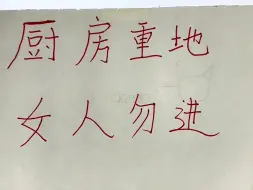 厨房重地
女人勿进